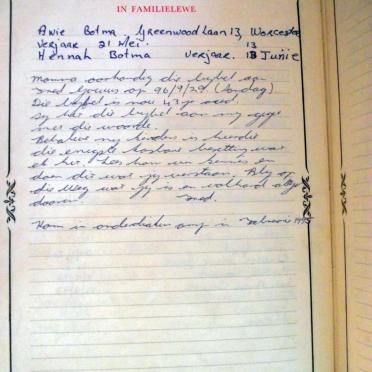 IN FAMILIELEWE
Anie Botma. Greenwood Laan 13, Worcester
Verjaar 21 Mei.
Hennah Botma Verjaar. 13 Junie
13
Mamma oorhandig die bybel aan
op 96/9/29. (Sondag)
Die bybel is nou 43 jr oud.
Sy het die bybel aan my gegee
met die woorde.
Behalwe my kinders is hierdie
die enigste kosbare besitting wat
ek het. Lees hom en
doen die wat jy verstaan. Bly op
die Weg wat jy is en volhard
daarin
Kom in in